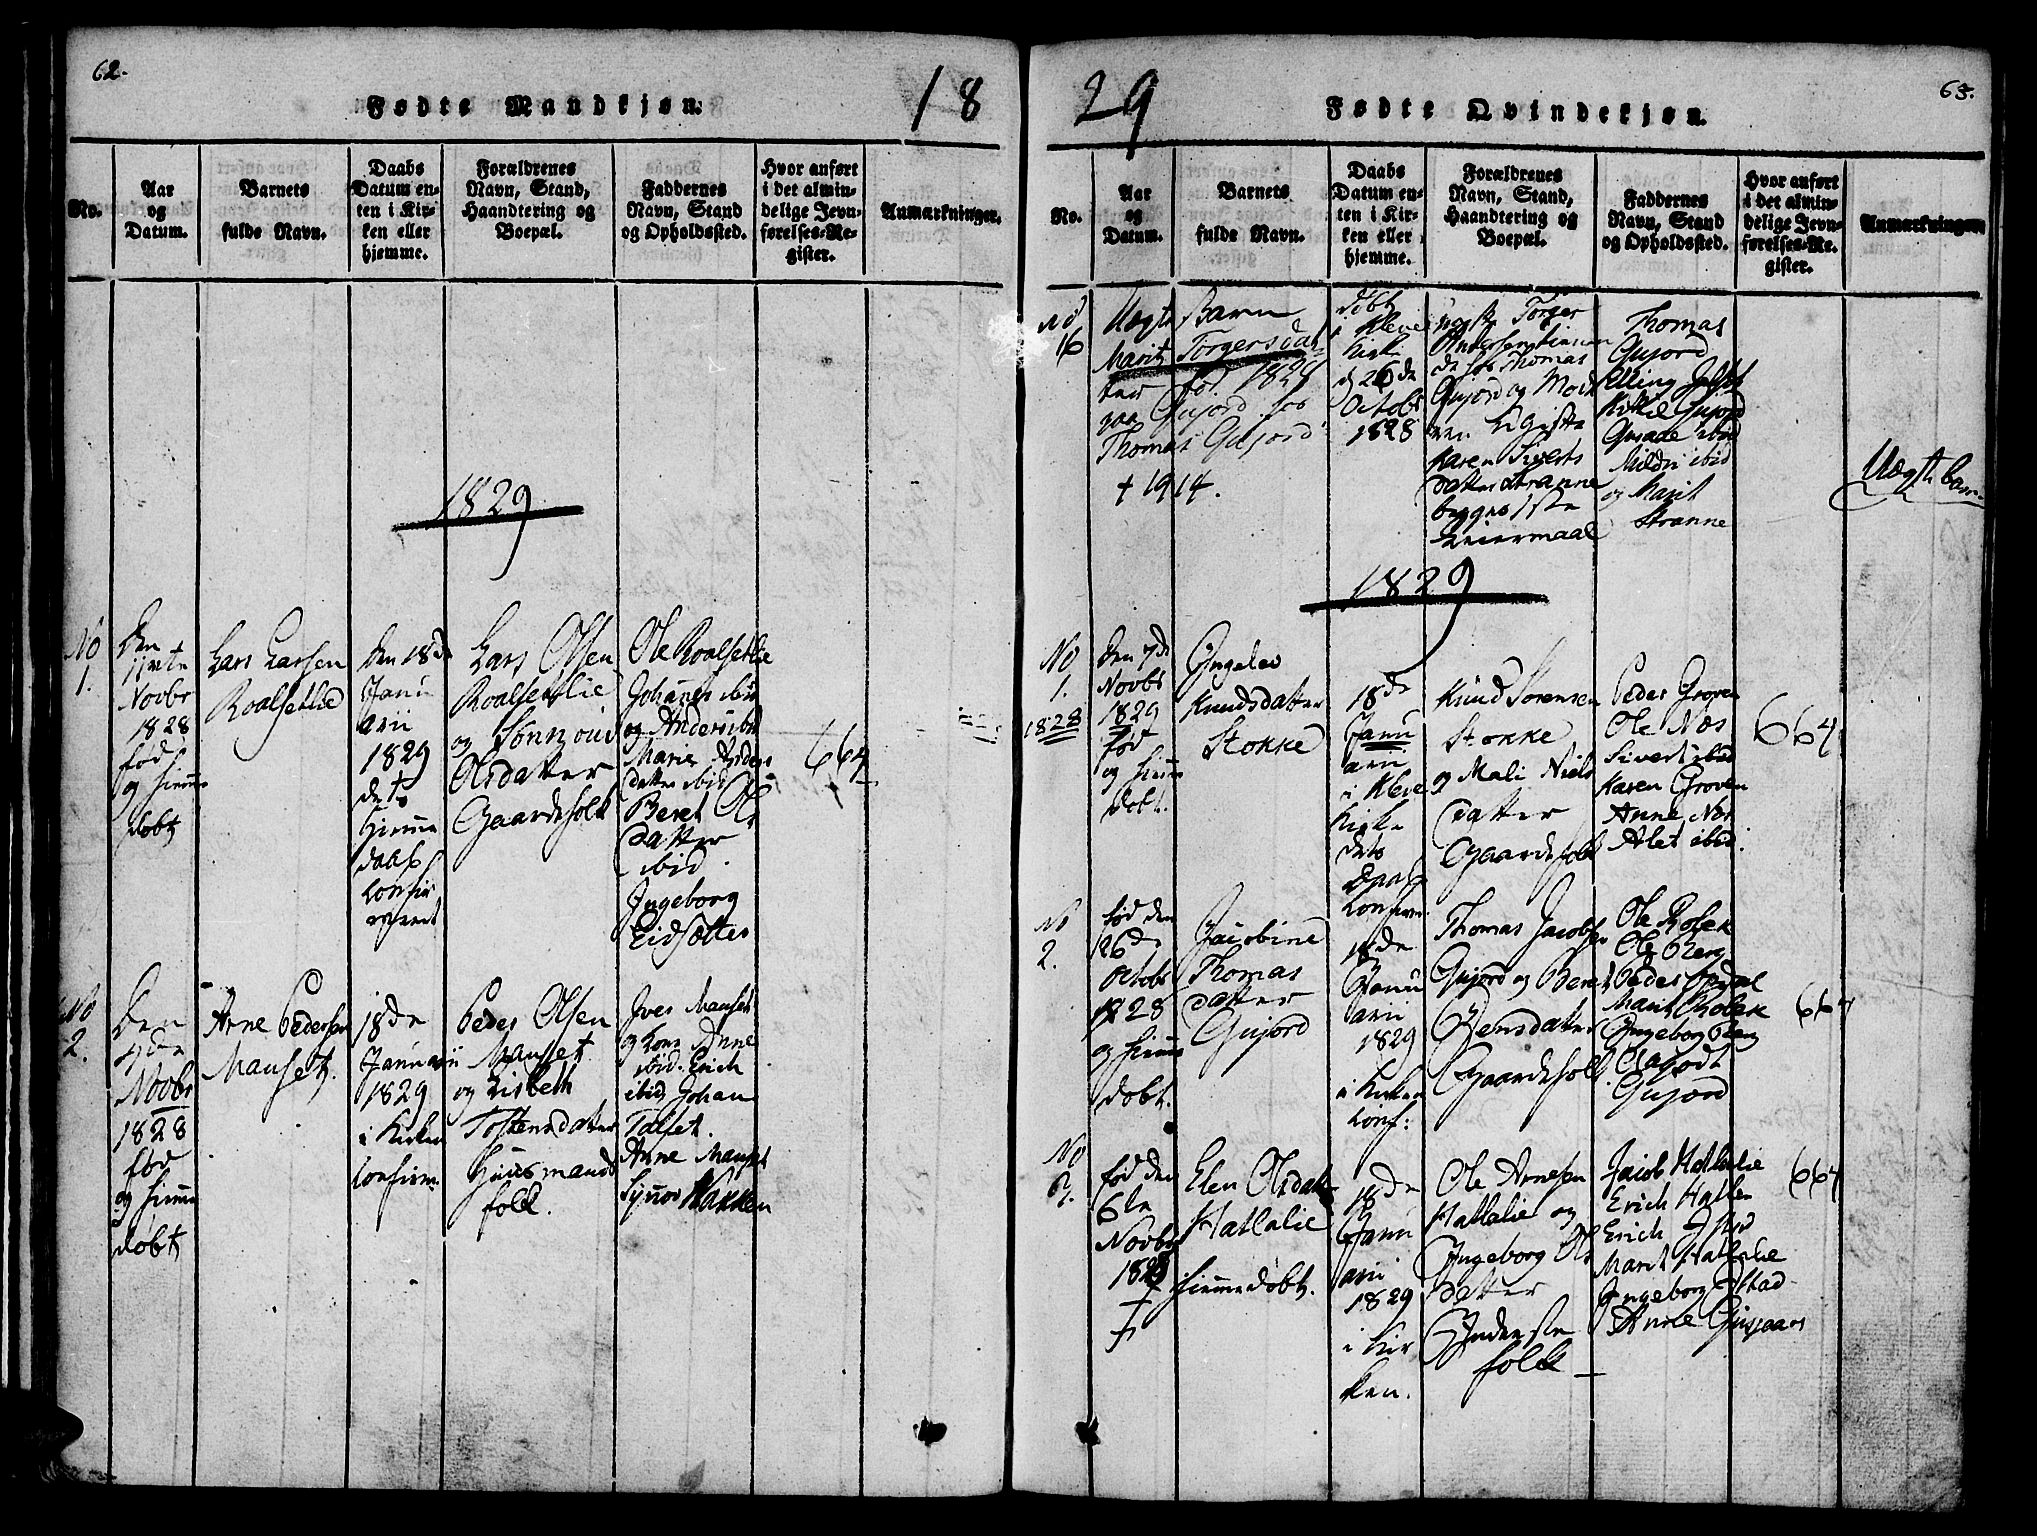 62.
Fødte Mandkjøn.
18
No.
Aar
og
Datum.
Barnets
fulde Navn.
Daabs
Datum en-
ten i Kir-
ken eller
hjemme.
Forældrenes
Navn, Stand,
Haandtering og
Boepæl.
Faddernes
Navn, Stand
og Opholdssted.
Hvor anført
i det almin-
delige Jevn-
førelses-Re-
gister.
Anmærkninger.
1829
No
1.
Den
11rte
Novbr
1828
fød
og hiemme
døbt
Lars Larsen
Roalsetlie
den 18de
Janu
arii
1829
dets
hiemme
daab
confir
meret
Lars Olsen
Roalsetlie
og Sønnoui
Olsdatter
Gaardsfolk
Ole Roalsetlie
Johanes ibid
og Anders ibid
Marie Anders
datter ibid
Beret Ols
datter
ibid.
Ingeborg
Eidsætter
664
No
2.
Den
4de
Novbr
1828
fød
og hiemme
døbt
Arne Pedersen
Mauset.
18de
Januarii
1829
i Kirken
confirm.
Peder Olsen
Mauset
og Lisbeth
Tostensdatter
Huusmands
folk.
Iver Mauset
og Kone Anne
ibid. Erich
ibid, Johan
Talset.
Anne Mauset
Synov Nakken
29
Fødte Qvindekjøn.
63.
No.
Aar
og
Datum.
Barnets
fulde Navn.
Daabs
Datum en-
ten i Kir-
ken eller
hjemme.
Forældrenes
Navn, Stand,
Haandtering og
Boepæl.
Faddernes
Navn, Stand
og Opholdssted.
Hvor anført
i det almin-
delige Jevn-
førelses-Re-
gister.
Anmærkninger.
No
16
Uægte Barn
Marit Torgersdat
ter fød 1828
paa Gujord hos
Thomas Gujord
+ 1914.
døbt
i Kleve
Kirke
d 26de
Octobr
1828
Torger
Andersen tienen
de hos Thomas
Gujord og Mode
ren Ugifte
Karen Siverts
datter Stranne
begges 1ste
Leiermaal
Thomas
Gujord
Elling
Kittil Gujord
ibid
Mildri ibid
og Marit
Stranne
Uægte barn
1829
No
1.
1828
Den 7de
Novbr
1829
fød
og hiemme
døbt.
Ingelev
Knudsdatter
Stokke
18de
Janu
arii
i Kleve
Kirke
dets
Daab
confirm.
Knud Sørensen
Stokke
og Mali Niels
datter
Gaardsfolk
Peder Groven
Ole Næs
Sivert ibid
Karen Groven
Anne Næs
Alet ibid.
664
No
2.
fød den
26de
Octobr
1828
og hiemme
døbt.
Jacobine
Thomas
datter
Gujord
18de
Janu
arii
1829
i Kirken
conf:
Thomas Jacobsen
Gujord og Beret
Jensdatter
Gaardsfolk
Ole Robek
Ole Berg
Peder Opdøl
Marit Robek
Ingeborg Berg
Gujord
664
No
fød den
6te
Novbr
1828
+
Elen Olsdatter
Hatlalie
hiemme døbt.
18de
Janu
arii
1829
i Kir
ken.
Ole Arnesen
Hatlalie og
Ingeborg Ols
datter
Inderste
folk
Jacob Hatlalie
Erich Hatlen
Erich
Marit Hatlalie
Ingeborg Olstad
Anne Gusjaas
664